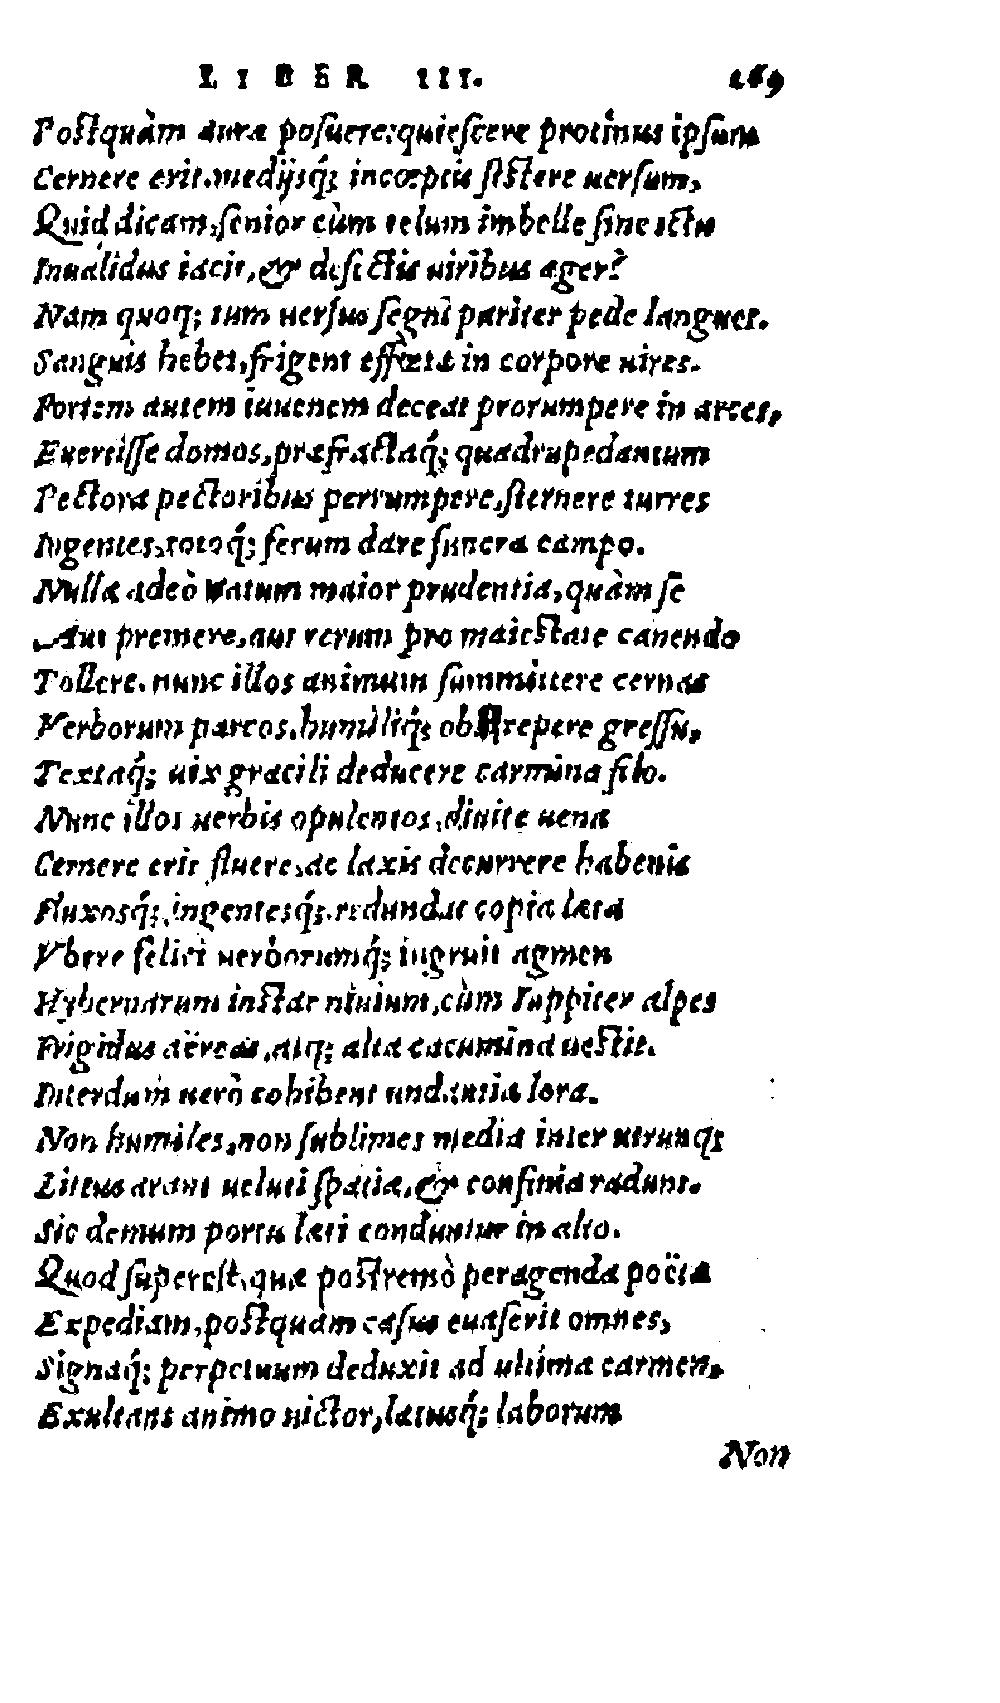 LIBER III. 169
Postquàm auræ posuere: quiescere protinus ipsum
Cernere erit. medijsq́; incœptis sistere uersum,
Quid dicam, senior cùm telum imbelle sine ictu
Inualidus iacit, & defectis uiribus æger?
Nam quoq; tum uersus segni pariter pede languet.
Sanguis hebet, frigent effœtæ in corpore uires.
Fortem autem iuuenem deceat prorumpere in arces,
Euertisse domos, præfractaq́; quadrupedantum
Pectora pectoribus perrumpere, sternere turres
Ingentes, totoq́; ferum dare funera campo.
Nulla adeò uatum maior prudentia, quàm se
Aut premere, aut rerum pro maiestate canendo
Tollere. nunc illos animum summittere cernas
Verborum parcos, humiliq́; obrepere gressu,
Textaq́; uix gracili deducere carmina filo.
Nunc illos uerbis opulentos, diuite uena
Cernere erit fluere, ac laxis decurrere habenis
Fluxosq́;, ingentesq́;. redundat copia læta
Vbere felici uerborumq́; ingruit agmen
Hybernarum instar niuium, cùm Iuppiter alpes
Frigidus aëreas, atq; alta cacumina uestit.
Interdum uerò cohibent undantia lora.
Non humiles, non sublimes media inter utrunq;
Litus arant ueluti spatia, & confinia radunt.
Sic demum portu læti conduntur in alto.
Quod superest, quæ postremò peragenda poëtæ
Expediam, postquàm casus euaserit omnes,
Signaq́; perpetuum deduxit ad ultima carmen,
Exultans animo uictor, lætusq́; laborum
Non